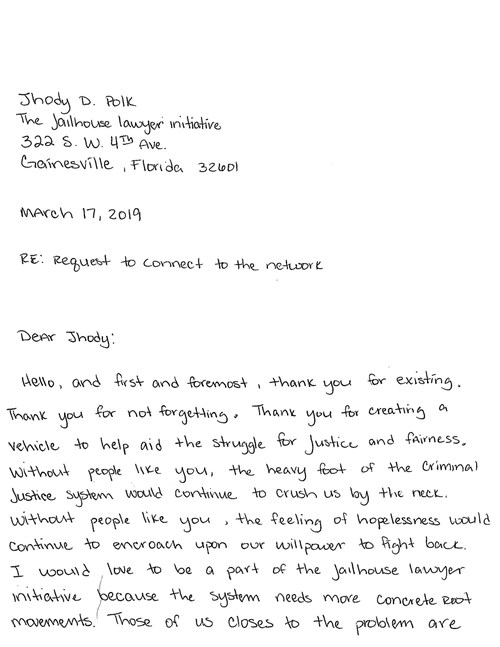 Jhody D. Polk
The Jailhouse lawyer initiative
322 S. W. 4Th Ave.
Gainesville , Florida 32601
MArch 17, 2019
RE: Request to connect to the network
Dear Jhody:
Hello, and first and foremost, thank you for existing.
Thank you for not forgetting. Thank you for creating a
vehicle to help aid the struggle for Justice and fairness.
Without people like you, the heavy foot of the Criminal
Justice System would continue to crush us by the neck.
Without people like you, the feeling of hopelessness would
continue to encroach upon our willpower to fight back.
I would love to be a part of the Jailhouse lawyer
initiative because the system needs more concrete Root
movements. Those of us closes to the problem are